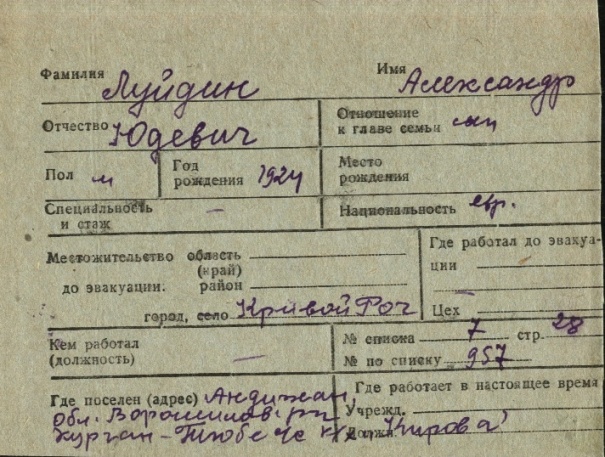 Фамилия Луйдин Имя Александр
Отчество Юдевич Отношение к главе семьи сын
Пол м Год рождения 1924 Место рождения
Специальность и стаж — Национальность евр.
Местожительство область (край)
до эвакуации. район
город, село Кривой Рог
Где работал до эвакуации —
Цех
Кем работал (должность) — № списка 7 стр. 28
№ по списку 957
Где поселен (адрес) Андижан.
обл. Ворошилов. р-н
Курган-Тюбе к/х Кирова
Где работает в настоящее время
Учрежд.
Должн.